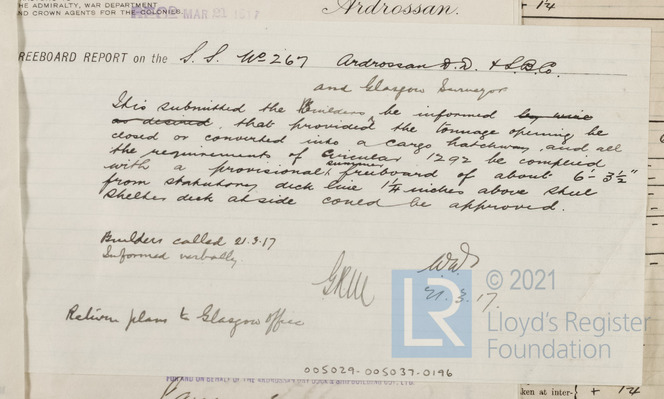 THE ADMIRALTY, WAR DEPARTMENT
ND CROWN AGENTS FOR THE COLONIES.
MAR 21 1917
Ardrossan.
+ 14
REEBOARD REPORT on the S.S. No 267 Ardrossan D.D. & S.B.Co.
and Glasgow Surveyor
It is submitted the Builders be informed by wire
as desired, that provided the tonnage opening be
closed or converted into a cargo hatchway, and all
the requirements of Circular 1292 be complied
with a provisional summer freeboard of about 6'-3½"
from statutory deck line 1¼ inches above steel
shelter deck at side could be approved.
Builders called 21.3.17
Informed verbally.
GRM
WW
21.3.17.
Return plans to Glasgow office
LR
© 2021
Lloyd's Register
Foundation
005029-005037-0196
FOR AND ON BEHALF OF THE ARDROSSAN DRY DOCK & SHIPBUILDING CO., LTD.
ken at inter-
+ 14